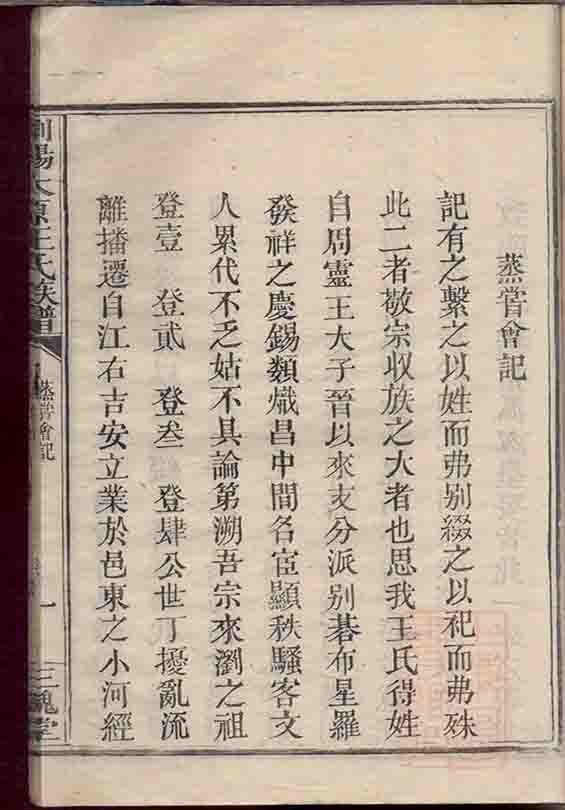 蒸甞會記
記有之繫之以姓而弗别綴之以祀而弗殊
此二者敬宗収族之大者也思我王氏得姓
自周靈王大子晉以來支分派别碁布星羅
發祥之慶錫類熾昌中間名宦顯秩騷客文
人累代不乏姑不具論第溯吾宗來瀏之祖
登壹 登貳 登叁 登肆公世丁擾亂流
離播遷自江右吉安立業於邑東之小河經
瀏陽太原王氏族譜
蒸甞會記
一
三槐堂